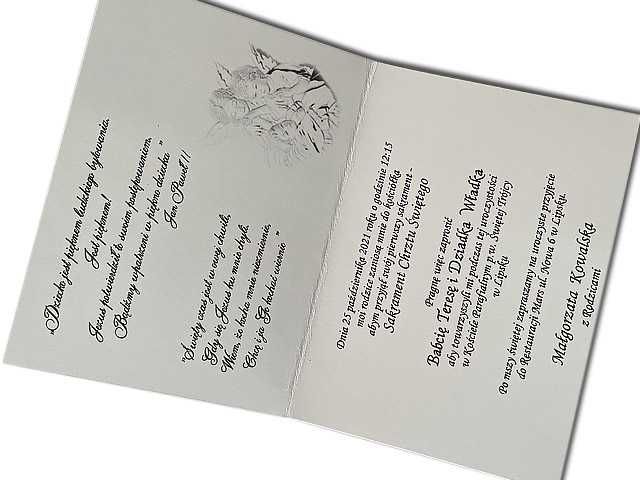 „Dziecko jest pięknem ludzkiego bytowania.
Jest pięknem!
Jezus potwierdził to swoim postępowaniem.
Bądźmy wpatrzeni w piękno dziecka"
Jan Paweł II
"Święty czas jest w owej chwili,
Gdy się Jezus ku mnie chyli.
Wiem, że kocha mnie niezmiennie,
Chcę i ja Go kochać wiernie"
Dnia 25 października 2021 roku o godzinie 12:15
moi rodzice zaniosą mnie do kościółka
abym przyjął swój pierwszy sakrament -
Sakrament Chrztu Świętego
Pragnę więc zaprosić
Babcię Teresę i Dziadka Władka
aby towarzyszyli mi podczas tej uroczystości
w Kościele Parafialnym p.w. Świętej Trójcy
w Lipsku
Po mszy świętej zapraszamy na uroczyste przyjęcie
do Restauracji Mars ul. Nowa 6 w Lipsku.
Małgorzata Kowalska
z Rodzicami